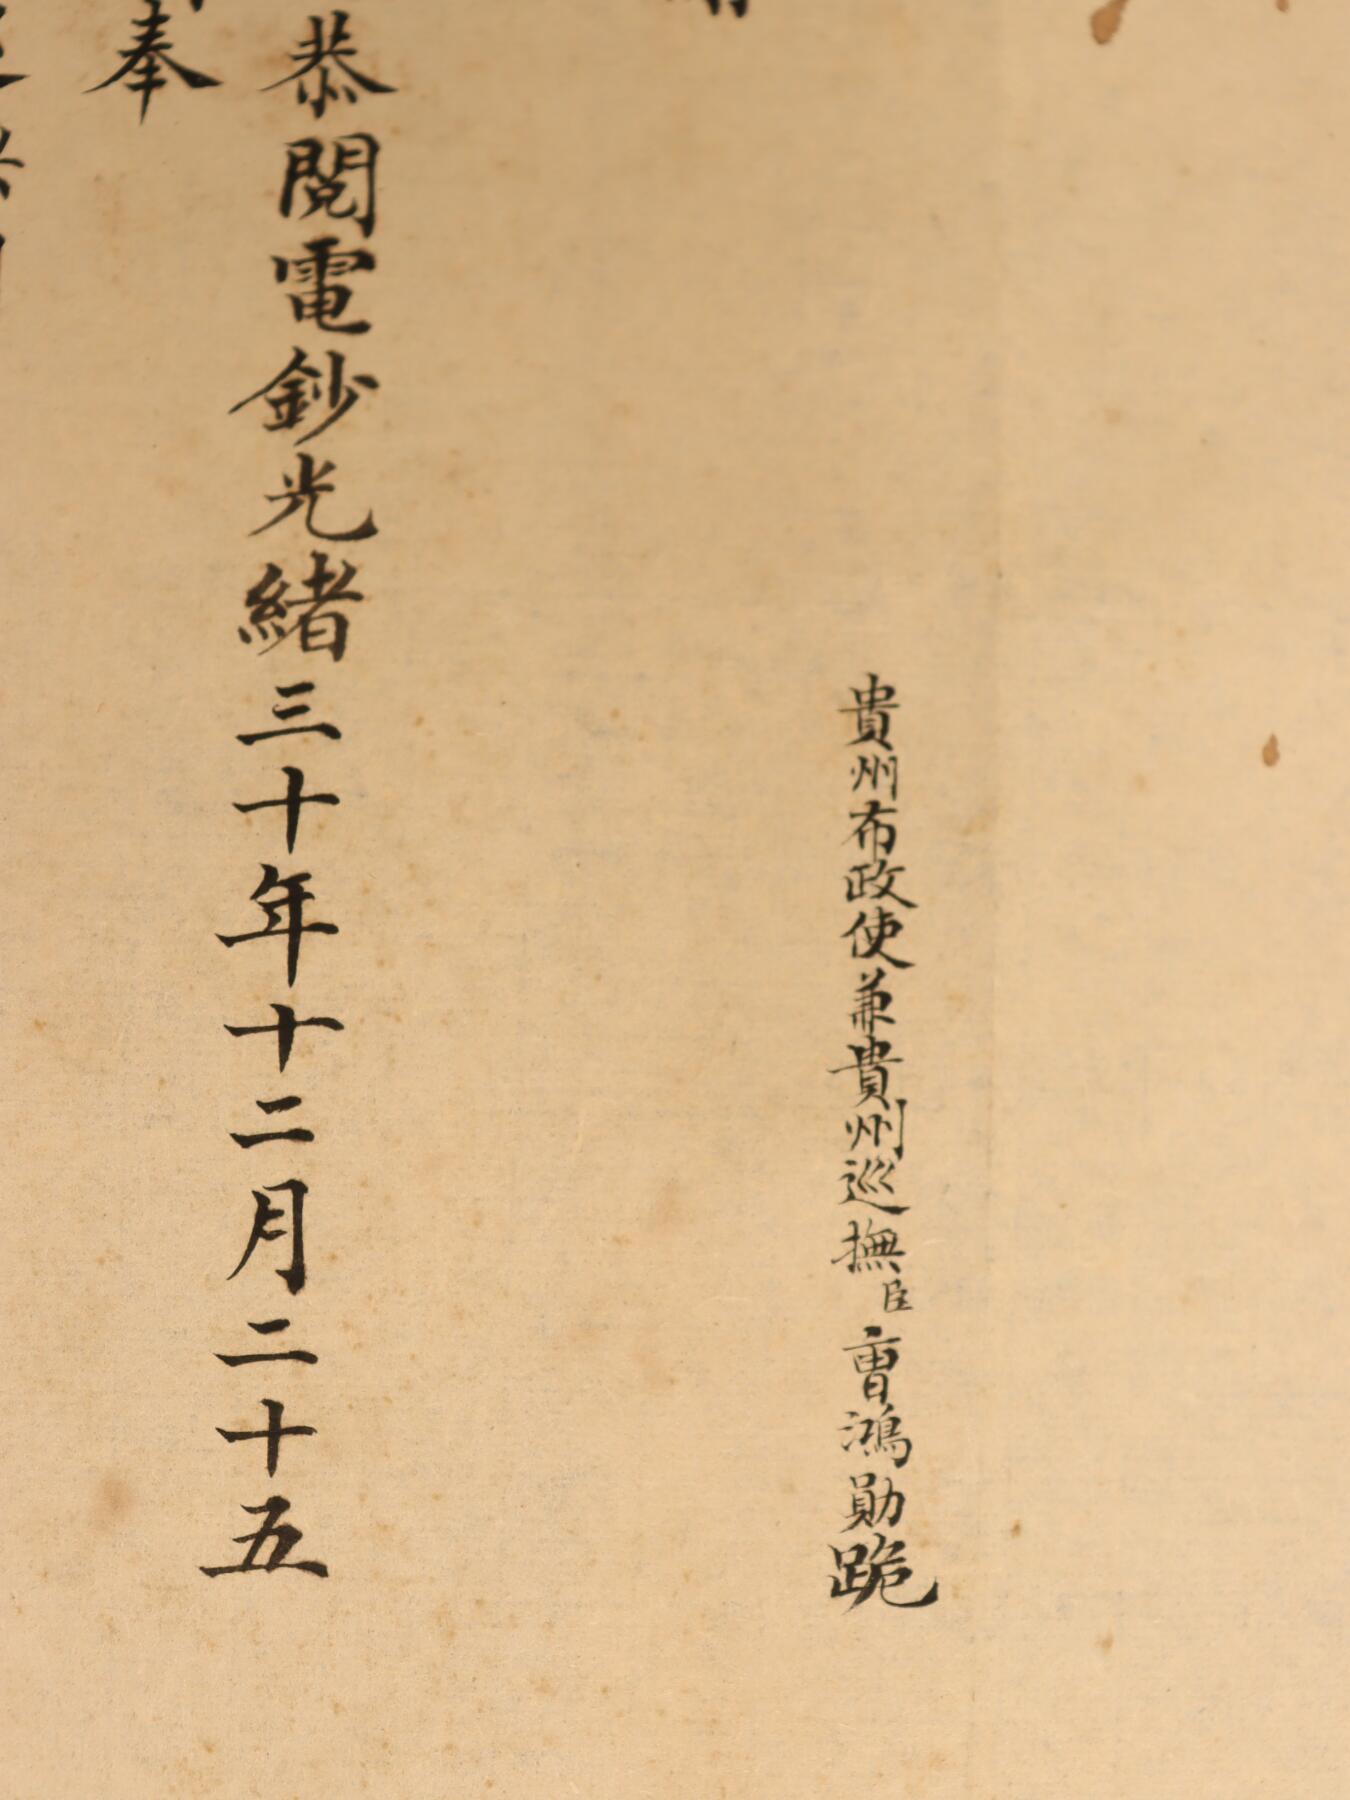 貴州布政使兼貴州巡撫臣曺鴻勛跪
恭閱電鈔光緒三十年十二月二十五
奉